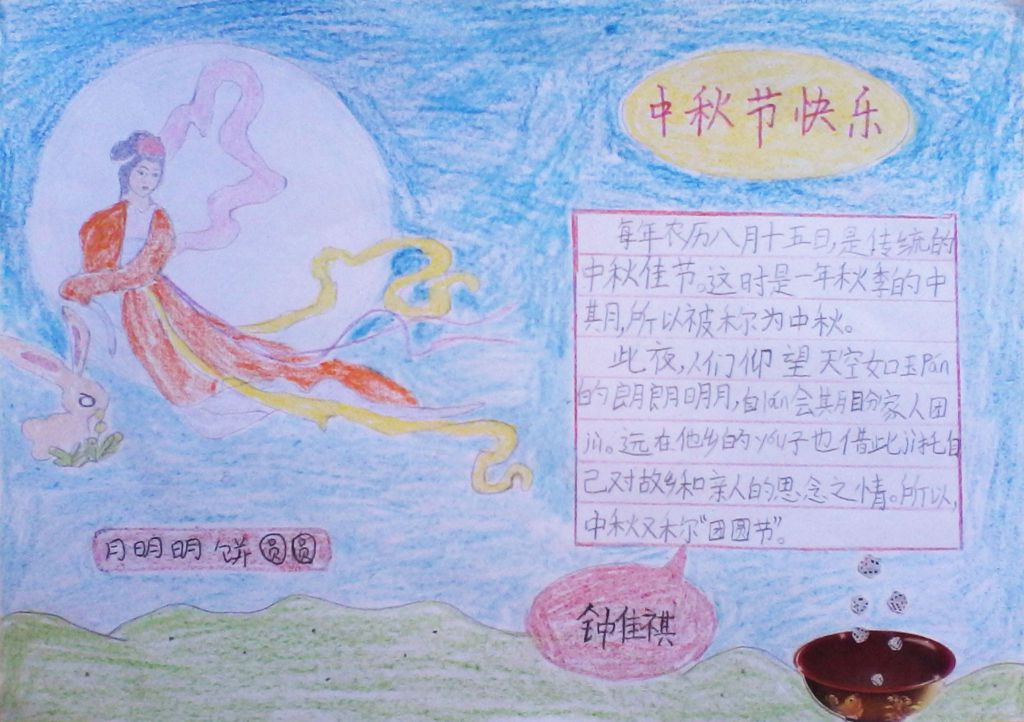 中秋节快乐
每年农历八月十五日,是传统的
中秋佳节。这时是一年秋季的中
期,所以被称为中秋。
此夜,人们仰望天空如玉Pán
的朗朗明月,自lán会期盼家人团
jù。远在他乡的yóu子也借此jì托自
己对故乡和亲人的思念之情。所以,
中秋又称“团圆节”。
月明明饼圆圆
钟佳祺